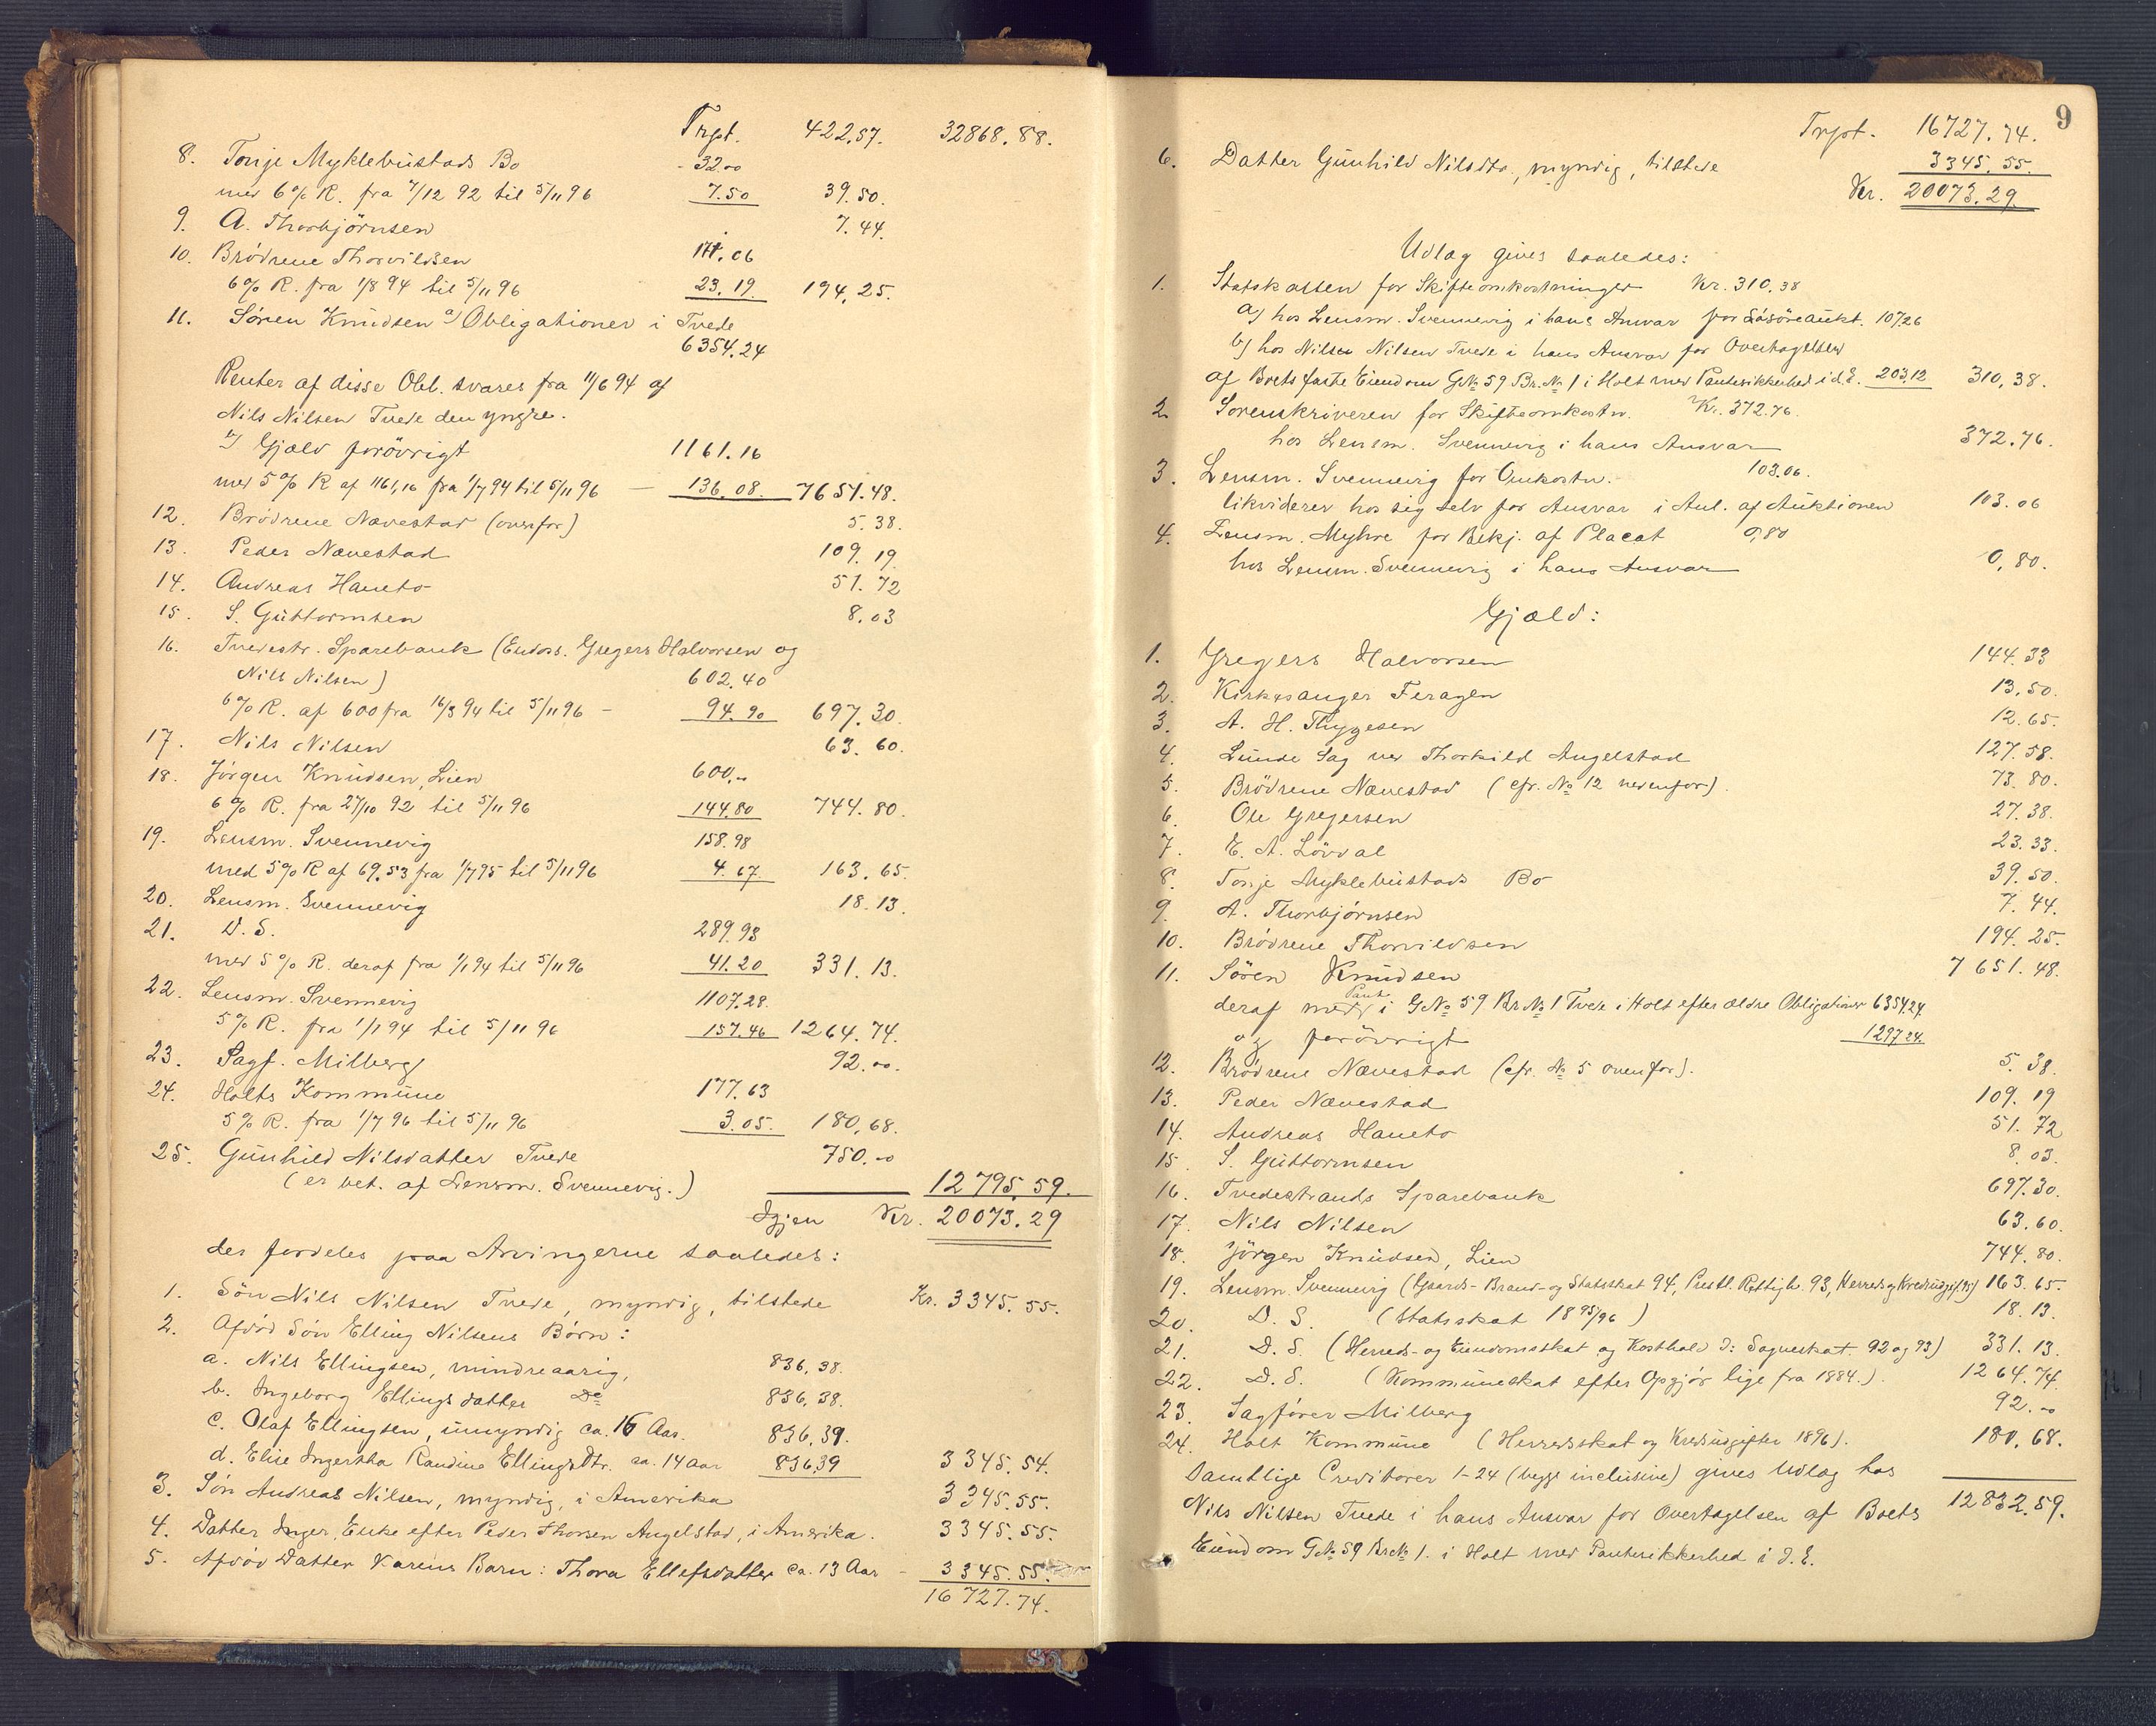 Trpt. 422,57. 32868.88.
8. Tonje Myklebustads Bo 32.00
med 6% R. fra 7/12 92 til 5/11 96 7.50 39.50.
9. A. Thorbjörnsen 7.44.
10. Brödrene Thorvildsen 171.06
6% R. fra 1/8 94 til 5/11 96 23.19 194,25.
11. Sören Knudsen a) Obligationer i Tvede
6354.24
Renter af disse Obl. svares fra 11/6 94 af
Nils Nilsen Tvede den yngre.
b) Gjæld forövrigt 1161.16
med 5% R af 1161,16 fra 1/7 94 til 5/11 96 — 136.08. 7651.48.
12. Brödrene Nævestad (ovenfor) 5.38.
13. Peder Nævestad 109.19
14. Andreas Haneto 51.72
15. S. Guttormsen 8.03
16. Tvedestr. Sparebank (Endoss. Gregers Halvorsen og
Nils Nilsen) 602.40
6% R. af 600 fra 16/3 94 til 5/11 96 — 94.90 697.30.
17. Nils Nilsen 63.60.
18. Jörgen Knudsen, Lien 600,00
6% R. fra 27/10 92 til 5/11 96 144.80 744.80.
19. Lensm. Svennevig 158.98
med 5% R af 69.53 fra 1/7 95 til 5/11 96 4.67. 163.65.
20. Lensm. Svennevig 18.13.
21. D. S. 289.93
med 5% R. deraf fra 1/1 94 til 5/11 96 41.20 331.13.
22. Lensm. Svennevig 1107.28.
5% R. fra 1/1 94 til 5/11 96 157.46 1264.74.
23. Sagf. Milberg 92.00.
24. Holts Kommune 177.63
5% R. fra 1/7 96 til 5/11 96 3.05. 180,68.
25. Gunhild Nilsdatter Tvede 750.00
(er bet. af Lensm. Svennevig.) 12795.59.
Igjen Kr. 20073.29
der fordeles paa Arvingerne saaledes:
1. Sön Nils Nilsen Tvede, myndig, tilstede Kr. 3345.55.
2. Afdöd Sön Elling Nilsens Börn:
a. Nils Ellingsen, mindreaarig, 836,38.
b. Ingeborg Ellingsdatter Do 836,38.
c. Olaf Ellingsen, umyndig ca. 16 Aar. 836,39.
d. Elise Ingertha Randine Ellingsdtr. ca. 14 aar 836,39 3345.54.
3. Sön Andreas Nilsen, myndig, i Amerika 3345.55.
4. Datter Inger, Enke efter Peder Thorsen Angelstad, i Amerika. 3345.55.
5. Afdöd Datter Karens Barn: Thora Ellefsdatter ca. 13 Aar — 3345.55.
16727.74.
9
Trpt. 16727.74.
6. Datter Gunhild Nilsdtr., myndig, tilstede 3345.55.
Kr. 20073.29
Udlæg gives saaledes:
1. Statskassen for Skifteomkostninger Kr. 310,38
a) hos Lensm. Svennevig i hans Ansvar for Lösöreaukt. 107.26
b) hos Nils Nilsen Tvede i hans Ansvar for Overtagelsen
af Boets faste Eiendom G.No 59 Br.No 1 i Holt med Pantesikkerhed i d. E. 203,12 310,38.
2. Sorenskriveren for Skifteomkostn. Kr. 372.76.
hos Lensm. Svennevig i hans Ansvar 372.76.
3. Lensm. Svennevig for Omkostn. 103.06.
likviderer hos sig selv for Ansvar i Anl. af Auktionen 103.06
4. Lensm. Myhre for Bekj. af Placat 0,80
hos Lensm. Svennevig i hans Ansvar 0,80.
Gjæld:
1. Gregers Halvorsen 144.33
2. Kirkesanger Feragen 13,50.
3. A. H. Thygesen 12.65.
4. Lunde Sag ved Thorkild Angelstad 127.58.
5. Brödrene Nævestad (cfr. No 12 nedenfor). 73.80.
6. Ole Gregersen 27.38.
7. E. A. Lövdal 23.33.
8. Tonje Myklebustads Bo 39.50.
9. A. Thorbjörnsen 7.44.
10. Brödrene Thorvildsen 194.25.
11. Sören Knudsen 7651.48.
deraf med Pant i G.No 59 Br.No 1 Tvede i Holt efter ældre Obligationer 6354.24.
og forövrigt 1297.24
12. Brödrene Nævestad (cfr. No 5 ovenfor). 5.38.
13. Peder Nævestad 109.19
14. Andreas Haneto 51.72
15. S. Guttormsen 8.03.
16. Tvedestrands Sparebank 697.30.
17. Nils Nilsen 63.60.
18. Jörgen Knudsen, Lien 744.80.
19. Lensm. Svennevig (Gaards- Brand- og Statsskat 94, Prestl. Rettigh. 93, Herreds og Kredsudgif. 95) 163.65.
20. D. S. (Statsskat 1895/96) 18.13.
21. D. S. (Herreds- og Eiendomsskat og Kosthold ɔ: Sogneskat 92 og 93) 331.13.
22. D. S. (Kommuneskat efter Opgjör lige fra 1884.). 1264.74.
23. Sagförer Milberg 92.00
24. Holt Kommune (Herredsskat og Kredsudgifter 1896). 180,68.
Samtlige Creditorer 1-24 (begge inclusive) gives Udlæg hos
Nils Nilsen Tvede i hans Ansvar for Overtagelsen af Boets 12832.59.
Eiendom G.No 59 Br.No 1. i Holt med Pantesikkerhed i d. E.